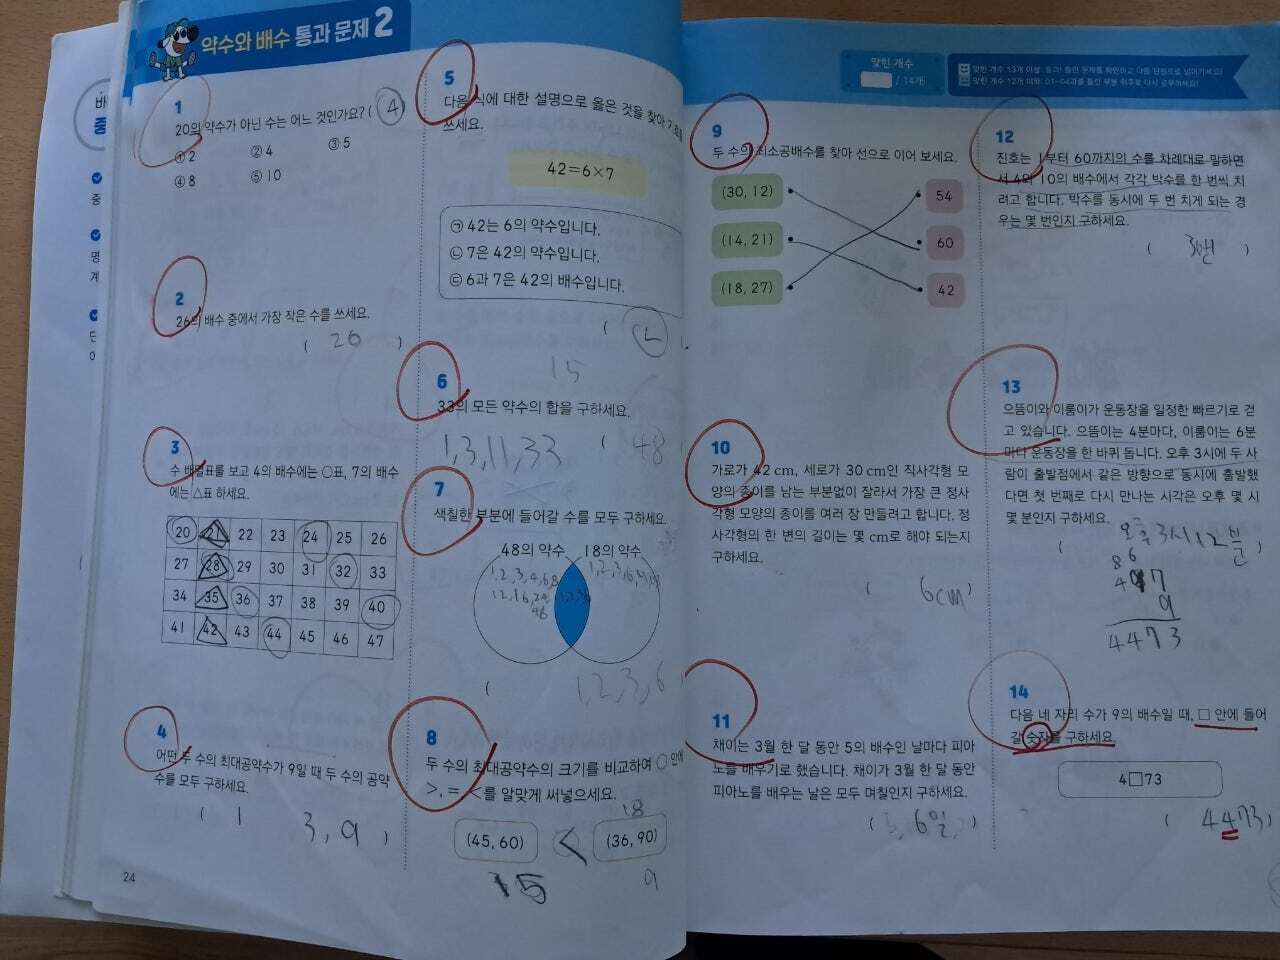 약수와 배수 통과 문제 2
1
20의 약수가 아닌 수는 어느 것인가요? ( 4 )
① 2 ② 4 ③ 5
④ 8 ⑤ 10
2
26의 배수 중에서 가장 작은 수를 쓰세요.
( 26 )
3
수 배열표를 보고 4의 배수에는 ○표, 7의 배수
에는 △표 하세요.
20 21 22 23 24 25 26
27 28 29 30 31 32 33
34 35 36 37 38 39 40
41 42 43 44 45 46 47
4
어떤 두 수의 최대공약수가 9일 때 두 수의 공약
수를 모두 구하세요.
( 1 3, 9 )
24
5
다음 식에 대한 설명으로 옳은 것을 찾아 기호를
쓰세요.
42=6×7
㉠ 42는 6의 약수입니다.
㉡ 7은 42의 약수입니다.
㉢ 6과 7은 42의 배수입니다.
( ㄴ
15
6
33의 모든 약수의 합을 구하세요.
1, 3, 11, 33 ( 48
7
색칠한 부분에 들어갈 수를 모두 구하세요.
48의 약수 18의 약수
1, 2, 3, 4, 6, 8
12, 16, 24
48
( 1, 2, 3, 6
8
두 수의 최대공약수의 크기를 비교하여 ○ 안에
>, =, <를 알맞게 써넣으세요.
18
(45, 60) < (36, 90)
15 9
맞힌 개수
/ 14개
맞힌 개수 13개 이상: 통과! 틀린 문제를 확인하고 다음 단원으로 넘어가세요!
맞힌 개수 12개 이하: 01~04과를 틀린 부분 위주로 다시 공부하세요!
9
두 수의 최소공배수를 찾아 선으로 이어 보세요.
(30, 12) 54
(14, 21) 60
(18, 27) 42
10
가로가 42 cm, 세로가 30 cm인 직사각형 모
양의 종이를 남는 부분없이 잘라서 가장 큰 정사
각형 모양의 종이를 여러 장 만들려고 합니다. 정
사각형의 한 변의 길이는 몇 cm로 해야 되는지
구하세요.
( 6cm )
11
채이는 3월 한 달 동안 5의 배수인 날마다 피아
노를 배우기로 했습니다. 채이가 3월 한 달 동안
피아노를 배우는 날은 모두 며칠인지 구하세요.
( 6일 )
12
진호는 1부터 60까지의 수를 차례대로 말하면
서 4와 10의 배수에서 각각 박수를 한 번씩 치
려고 합니다. 박수를 동시에 두 번 치게 되는 경
우는 몇 번인지 구하세요.
( 3번 )
13
으뜸이와 이룸이가 운동장을 일정한 빠르기로 걷
고 있습니다. 으뜸이는 4분마다, 이룸이는 6분
마다 운동장을 한 바퀴 돕니다. 오후 3시에 두 사
람이 출발점에서 같은 방향으로 동시에 출발했
다면 첫 번째로 다시 만나는 시각은 오후 몇 시
몇 분인지 구하세요.
( 오후 3시 12분
8 6
9
4473
14
다음 네 자리 수가 9의 배수일 때, □ 안에 들어
갈 숫자를 구하세요.
4□73
( 4473 )